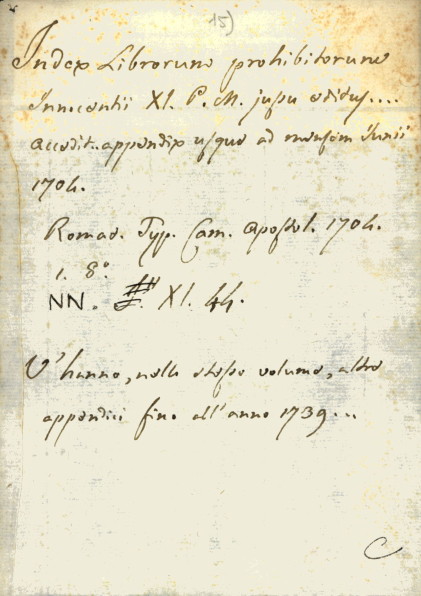 15)
Index Librorum prohibitorum
Innocentii XI. P. M. jussu editus....
accedit appendix usque ad mensem Junii
1704.
Romae. Typ. Cam. Apostol. 1704.
1. 8°.
NN. XI. 44.
V'hanno, nello stesso volume, altre
appendici fino all'anno 1739...
C